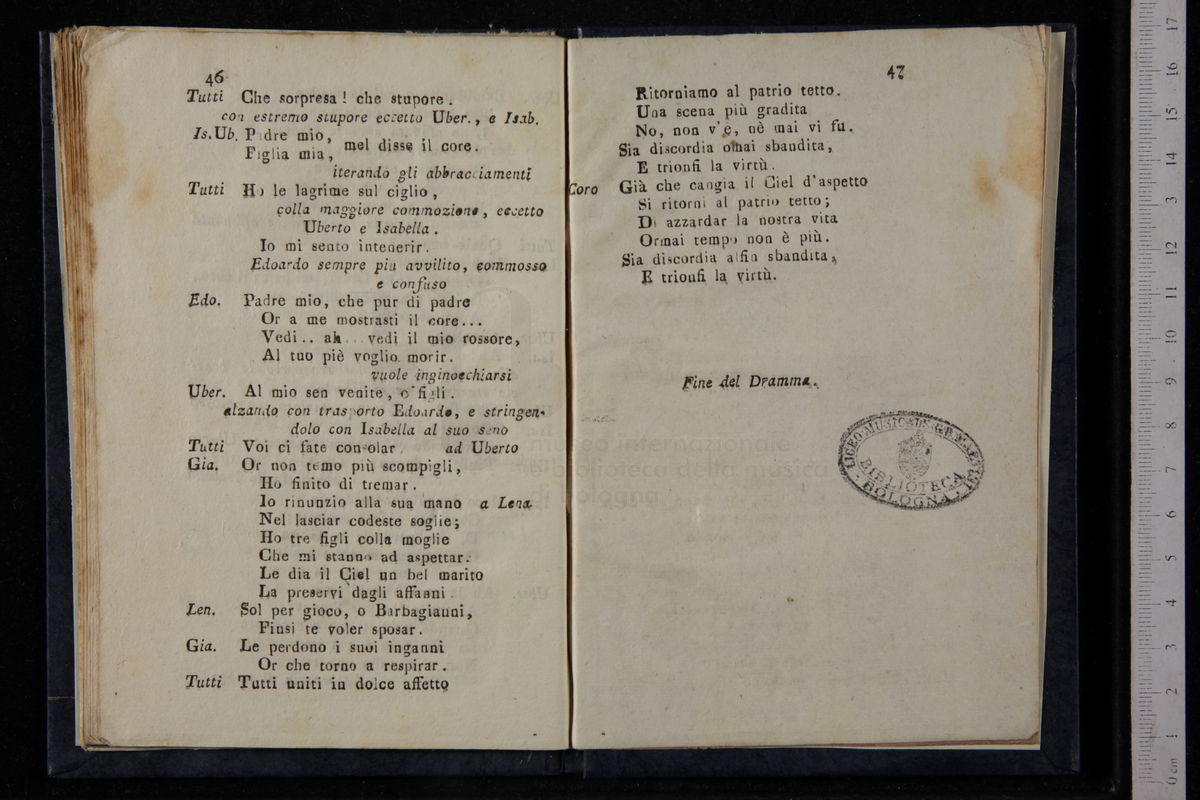 46
Tutti Che sorpresa! che stupore.
con estremo stupore eccetto Uber., e Isab.
Is. Ub. Padre mio,
Figlia mia, mel disse il core.
iterando gli abbracciamenti
Tutti Ho le lagrime sul ciglio,
colla maggiore commozione, eccetto
Uberto e Isabella.
Io mi sento intenerir.
Edoardo sempre più avvilito, commosso
e confuso
Edo. Padre mio, che pur di padre
Or a me mostrasti il core...
Vedi.. ah... vedi il mio rossore,
Al tuo piè voglio morir.
vuole inginocchiarsi
Uber. Al mio sen venite, o figli.
alzando con trasporto Edoardo, e stringen-
dolo con Isabella al suo seno
Tutti Voi ci fate consolar. ad Uberto
Gia. Or non temo più scompigli,
Ho finito di tremar.
Io rinunzio alla sua mano a Lena
Nel lasciar codeste soglie;
Ho tre figli colla moglie
Che mi stanno ad aspettar.
Le dia il Ciel un bel marito
La preservi dagli affanni.
Len. Sol per gioco, o Barbagianni,
Finsi te voler sposar.
Gia. Le perdono i suoi inganni
Or che torno a respirar.
Tutti Tutti uniti in dolce affetto
47
Ritorniamo al patrio tetto.
Una scena più gradita
No, non v'è, nè mai vi fu.
Sia discordia omai sbandita,
E trionfi la virtù.
Coro Già che cangia il Ciel d'aspetto
Si ritorni al patrio tetto;
Di azzardar la nostra vita
Ormai tempo non è più.
Sia discordia alfin sbandita,
E trionfi la virtù.
Fine del Dramma.
LICEO MUSICALE
BIBLIOTECA
BOLOGNA
museo internazionale
e biblioteca della musica
di bologna
0 cm 1 2 3 4 5 6 7 8 9 10 11 12 13 14 15 16 17